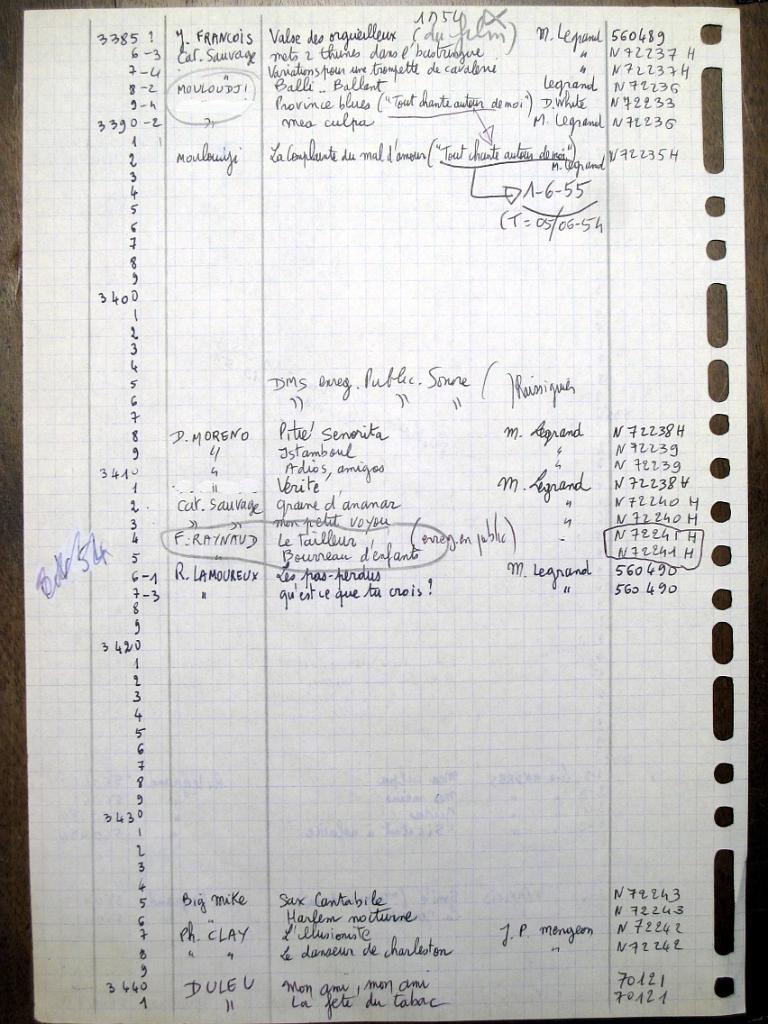 1954
3385 ? J. FRANCOIS Valse des orgueilleux (du film) M. Legrand 560489
6-3 Cat. Sauvage mets 2 thunes dans l'bastringue " N 72237 H
7-4 " Variations pour une trompette de cavalerie " N 72237 H
8-2 MOULOUDJI Balli.. Ballant Legrand N 72236
9-4 Province blues ("Tout chante autour de moi") D. White N 72233
3390-2 " mea culpa M. Legrand N 72236
1
2 Mouloudji La Complainte du mal d'amour ("Tout chante autour de moi") M. Legrand N 72235 H
3
4 1-6-55
5
6 (T = 05/06-54
7
8
9
3400
1
2
3
4
5 DMS enreg. Public. Sonore ( ) Russiques
6 " " "
7
8 D. MORENO Pitié Senorita M. Legrand N 72238 H
9 " Istamboul " N 72239
3410 " Adios, amigos " N 72239
1 " Vérité M. Legrand N 72238 H
2 Cat. Sauvage graine d'ananar " N 72240 H
3 " " mon petit voyou " N 72240 H
4 F. RAYNAUD Le tailleur (enreg. en public) - N 72241 H
5 Bourreau d'enfants N 72241 H
6-1 R. LAMOUREUX Les pas-perdus M. Legrand 560490
7-3 " qu'est ce que tu crois ? " 560 490
8
9
3420
1
2
3
4
5
6
7
8
9
3430
1
2
3
4
5 Big Mike Sax Cantabile N 72243
6 " Harlem nocturne N 72243
7 Ph. CLAY L'illusioniste J. P. Mengeon N 72242
8 " " Le danseur de charleston " N 72242
9
3440 DULEU Mon ami, mon ami 70121
1 " La fete du tabac 70121